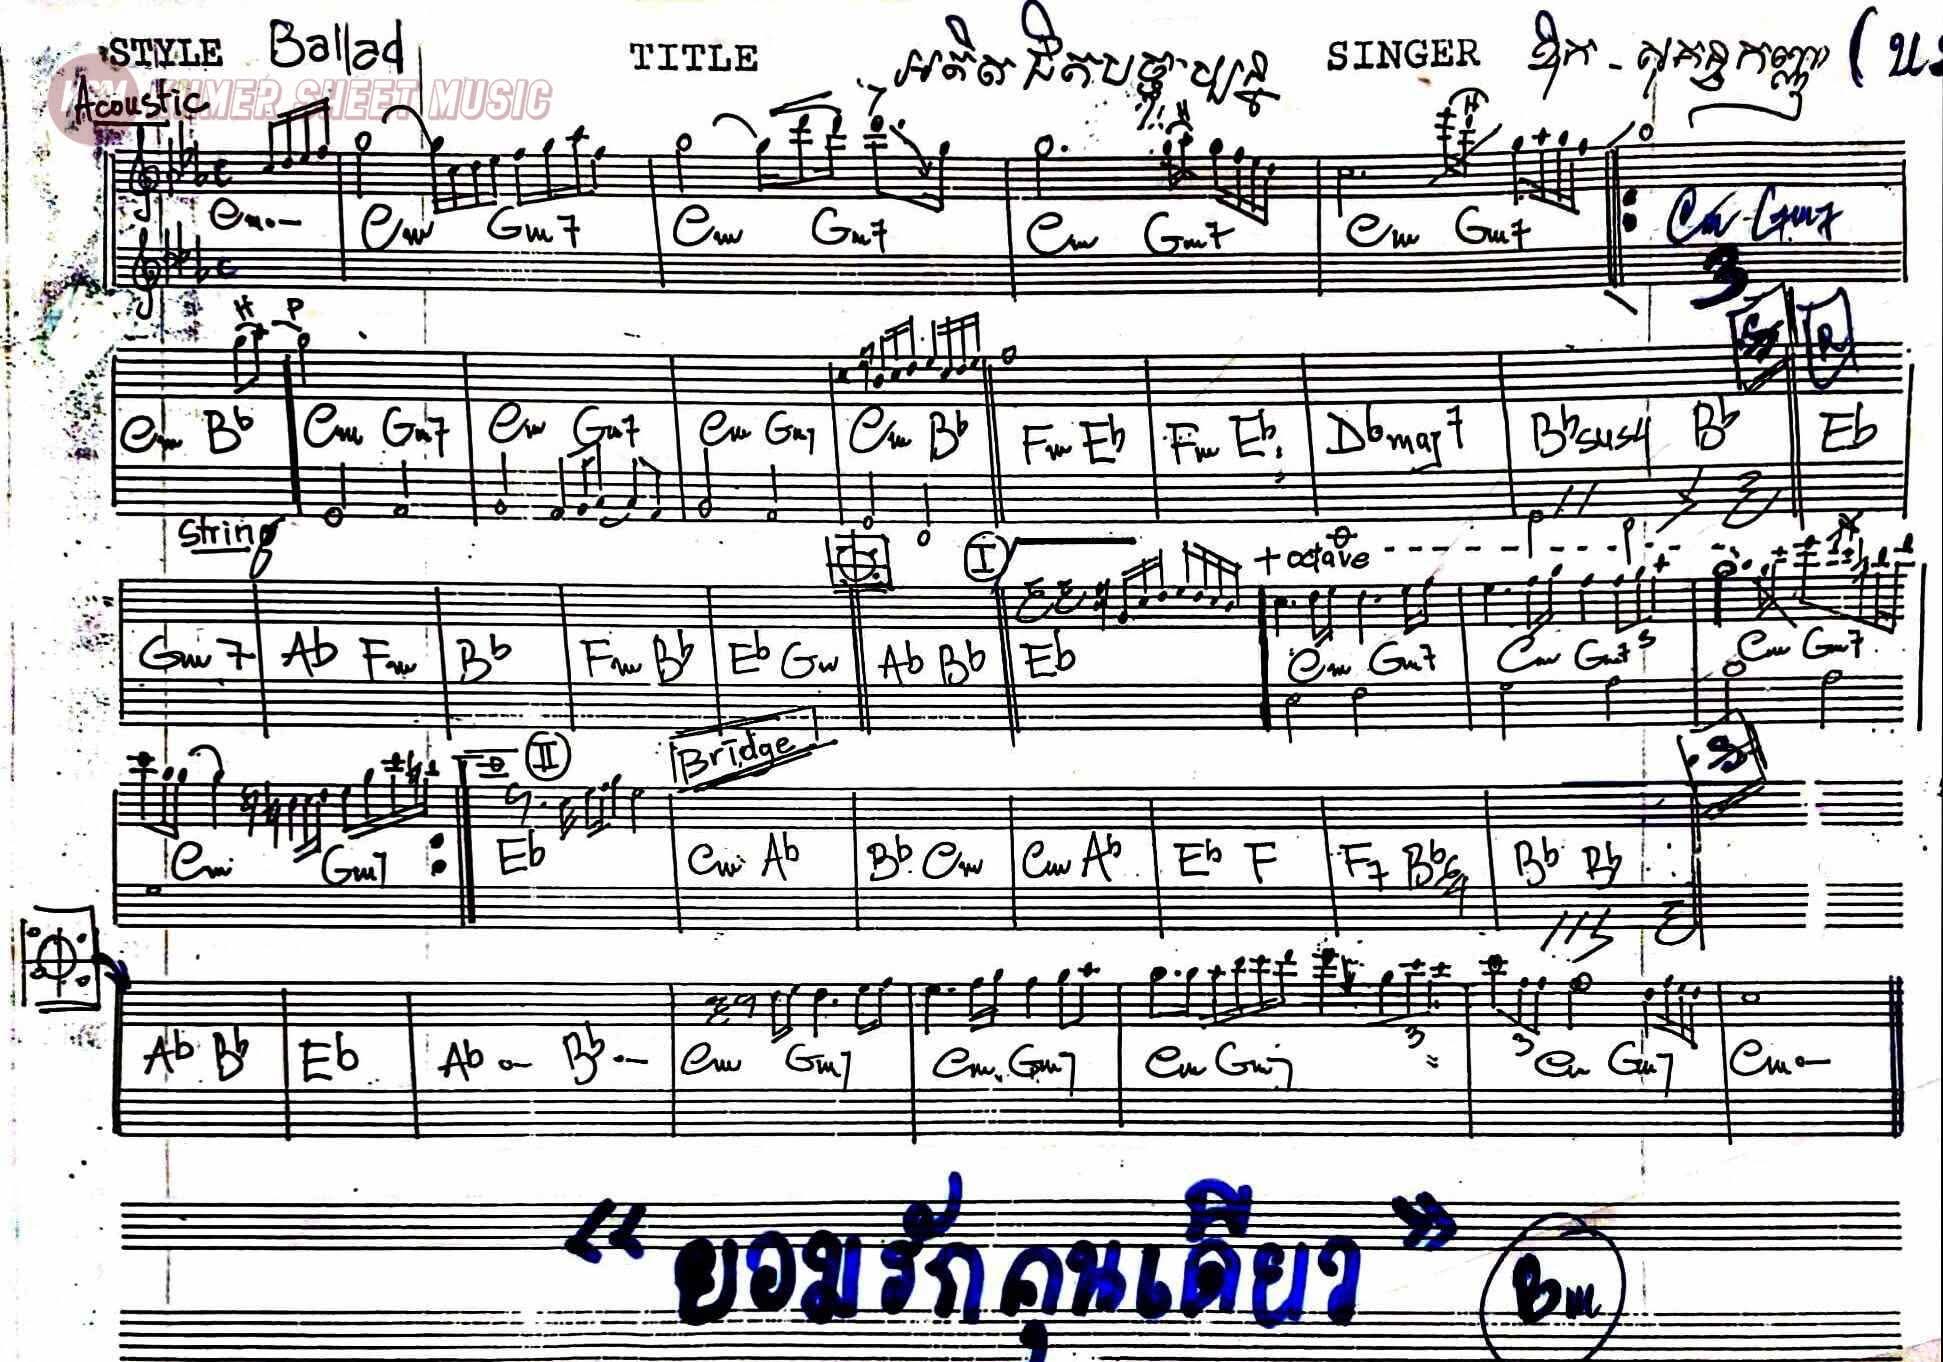 STYLE Ballad TITLE SINGER
KHMER SHEET MUSIC
Acoustic
H
Cm
Cm Gm7 Cm Gm7 Cm Gm7 Cm Gm7 Cm Gm7
3
H P
Cm Bb Cm Gm7 Cm Gm7 Cm Gm7 Cm Bb Fm Eb Fm Eb Dbmaj7 Bbsus4 Bb Eb
String
I + octave
Gm7 Ab Fm Bb Fm Bb Eb Gm Ab Bb Eb Cm Gm7 Cm Gm7 Cm Gm7
II Bridge
Cm Gm7 Eb Cm Ab Bb Cm Cm Ab Eb F F7 Bb Bb Bb
Ab Bb Eb Ab Bb Cm Gm7 Cm Gm7 Cm Gm7 Cm Gm7 Cm
3 3
“ยอมรักคุนเดียว” Bm